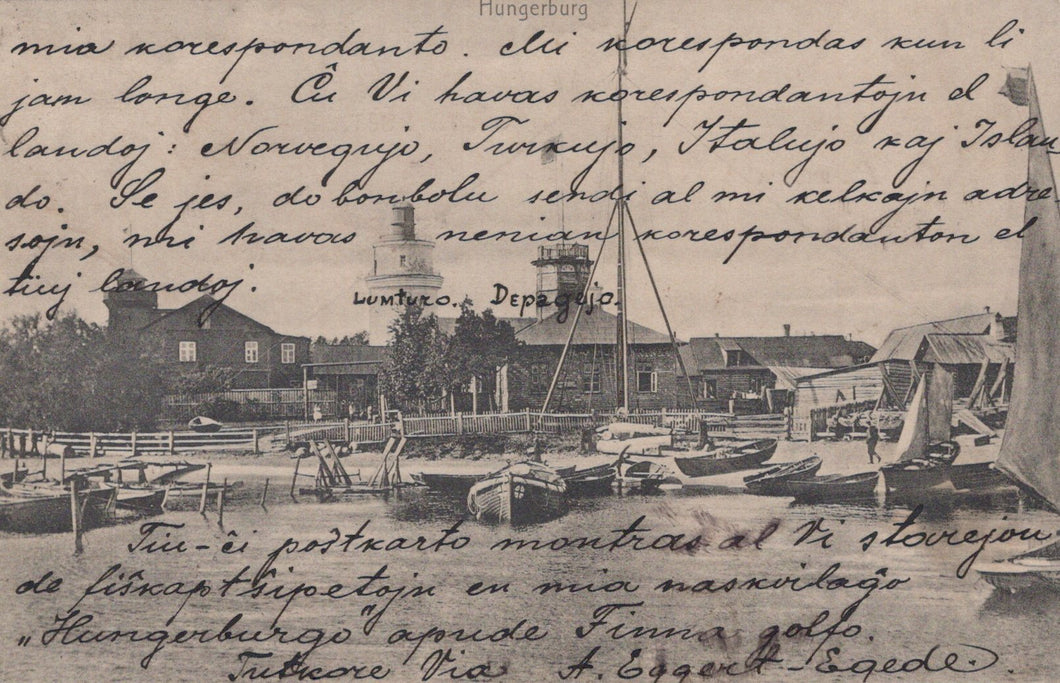 Hungerburg
mia korespondanto. Mi korespondas kun li
jam longe. Ĉu Vi havas korespondantojn el
landoj: Norvegujo, Turkujo, Italujo kaj Islan-
do. Se jes, do bonbolu sendi al mi kelkajn adre
sojn, mi havas nenian korespondanton el
tiuj landoj.
Lumturo.
Tiu-ĉi poŝtkarto montras al Vi starejon
de fiŝkaptŝipetojn en mia naskvilaĝo
„Hungerburgo" apude Finna golfo.
Tutkore Via A. Eggert-Egede.